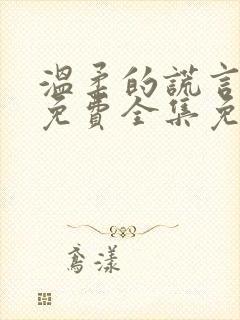 溫柔的謊言
免費全集免
喬漾